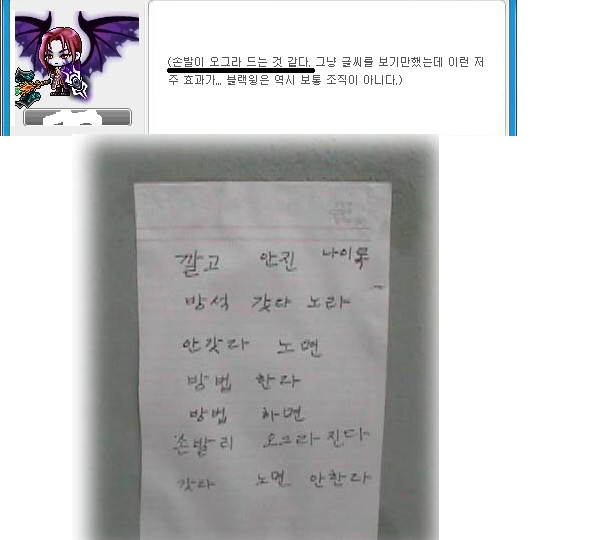 (손발이 오그라 드는 것 같다. 그냥 글씨를 보기만했는데 이런 저
주 효과가... 블랙윙은 역시 보통 조직이 아니다.)
깔고 안진 나이롱
방석 갖다 노라
안갖다 노면
방법 한다
방법 하면
손발리 오그라진다
갖다 노면 안한다